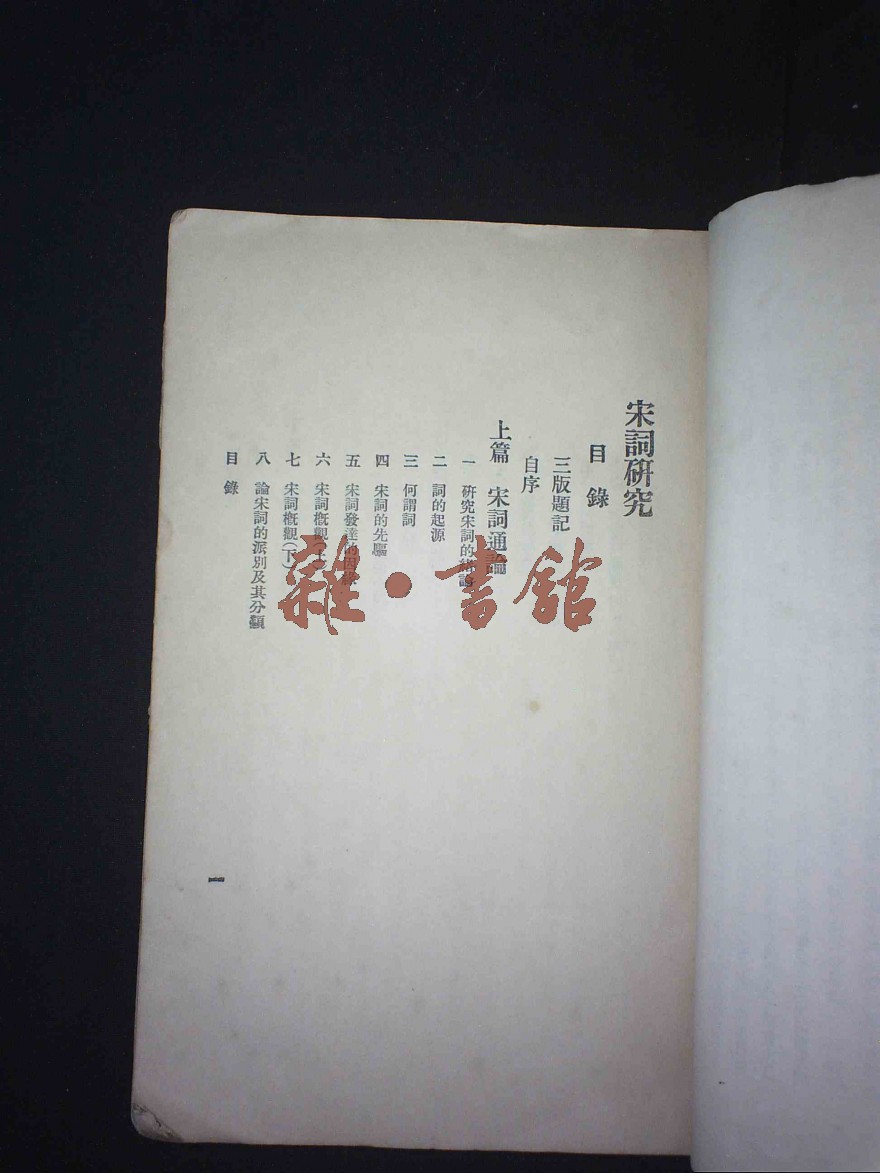 宋詞研究
目錄
三版題記
自序
上篇 宋詞通論
一 研究宋詞的緒論
二 詞的起源
三 何謂詞
四 宋詞的先驅
五 宋詞發達的因緣
六 宋詞概觀(上)
七 宋詞概觀(下)
八 論宋詞的派別及其分類
目錄
一
雜·書館